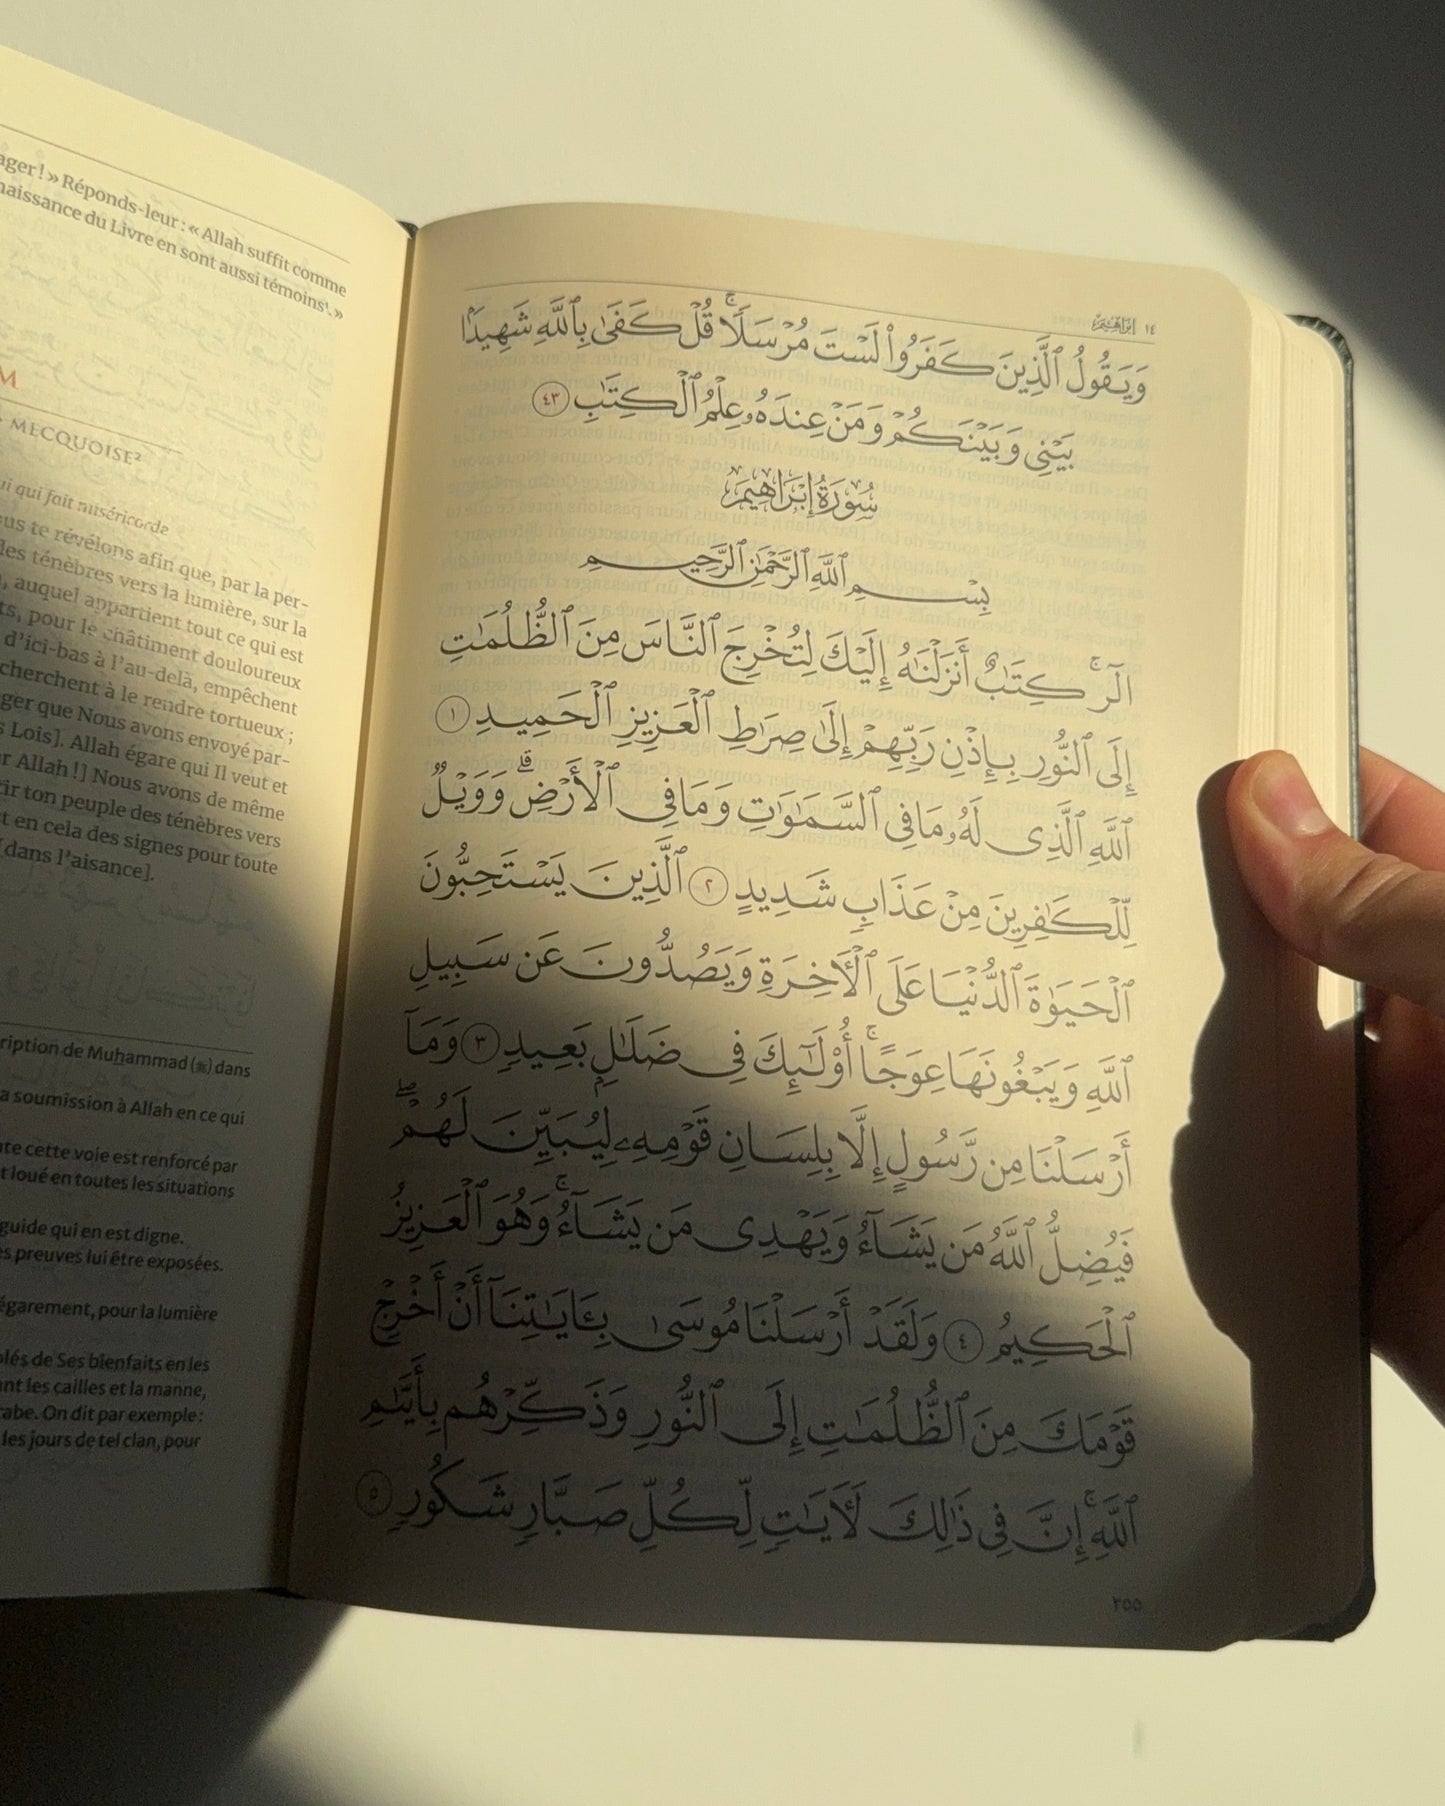 ager ! » Réponds-leur : « Allah suffit comme
naissance du Livre en sont aussi témoins¹. »
M
MECQUOISE²
ui qui fait miséricorde
ous te révélons afin que, par la per-
les ténèbres vers la lumière, sur la
, auquel appartient tout ce qui est
ts, pour le châtiment douloureux
d’ici-bas à l’au-delà, empêchent
cherchent à le rendre tortueux ;
ger que Nous avons envoyé par-
s Lois]. Allah égare qui Il veut et
r Allah !] Nous avons de même
tir ton peuple des ténèbres vers
t en cela des signes pour toute
[dans l’aisance].
ription de Muhammad (ﷺ) dans
a soumission à Allah en ce qui
te cette voie est renforcé par
t loué en toutes les situations
guide qui en est digne.
s preuves lui être exposées.
égarement, pour la lumière
lés de Ses bienfaits en les
nt les cailles et la manne,
abe. On dit par exemple :
les jours de tel clan, pour
١٤ إبراهيم
وَيَقُولُ ٱلَّذِينَ كَفَرُواْ لَسۡتَ مُرۡسَلٗاۚ قُلۡ كَفَىٰ بِٱللَّهِ شَهِيدَۢا
بَيۡنِي وَبَيۡنَكُمۡ وَمَنۡ عِندَهُۥ عِلۡمُ ٱلۡكِتَٰبِ ٤٣
سُورَةُ إِبۡرَاهِيمَ
بِسۡمِ ٱللَّهِ ٱلرَّحۡمَٰنِ ٱلرَّحِيمِ
الٓرۚ كِتَٰبٌ أَنزَلۡنَٰهُ إِلَيۡكَ لِتُخۡرِجَ ٱلنَّاسَ مِنَ ٱلظُّلُمَٰتِ
إِلَى ٱلنُّورِ بِإِذۡنِ رَبِّهِمۡ إِلَىٰ صِرَٰطِ ٱلۡعَزِيزِ ٱلۡحَمِيدِ ١
ٱللَّهِ ٱلَّذِي لَهُۥ مَا فِي ٱلسَّمَٰوَٰتِ وَمَا فِي ٱلۡأَرۡضِۗ وَوَيۡلٞ
لِّلۡكَٰفِرِينَ مِنۡ عَذَابٖ شَدِيدٍ ٢ ٱلَّذِينَ يَسۡتَحِبُّونَ
ٱلۡحَيَوٰةَ ٱلدُّنۡيَا عَلَى ٱلۡأٓخِرَةِ وَيَصُدُّونَ عَن سَبِيلِ
ٱللَّهِ وَيَبۡغُونَهَا عِوَجًاۚ أُوْلَٰٓئِكَ فِي ضَلَٰلِۭ بَعِيدٖ ٣ وَمَآ
أَرۡسَلۡنَا مِن رَّسُولٍ إِلَّا بِلِسَانِ قَوۡمِهِۦ لِيُبَيِّنَ لَهُمۡۖ
فَيُضِلُّ ٱللَّهُ مَن يَشَآءُ وَيَهۡدِي مَن يَشَآءُۚ وَهُوَ ٱلۡعَزِيزُ
ٱلۡحَكِيمُ ٤ وَلَقَدۡ أَرۡسَلۡنَا مُوسَىٰ بِـَٔايَٰتِنَآ أَنۡ أَخۡرِجۡ
قَوۡمَكَ مِنَ ٱلظُّلُمَٰتِ إِلَى ٱلنُّورِ وَذَكِّرۡهُم بِأَيَّىٰمِ
ٱللَّهِۚ إِنَّ فِي ذَٰلِكَ لَأٓيَٰتٖ لِّكُلِّ صَبَّارٖ شَكُورٖ ٥
٢٥٥